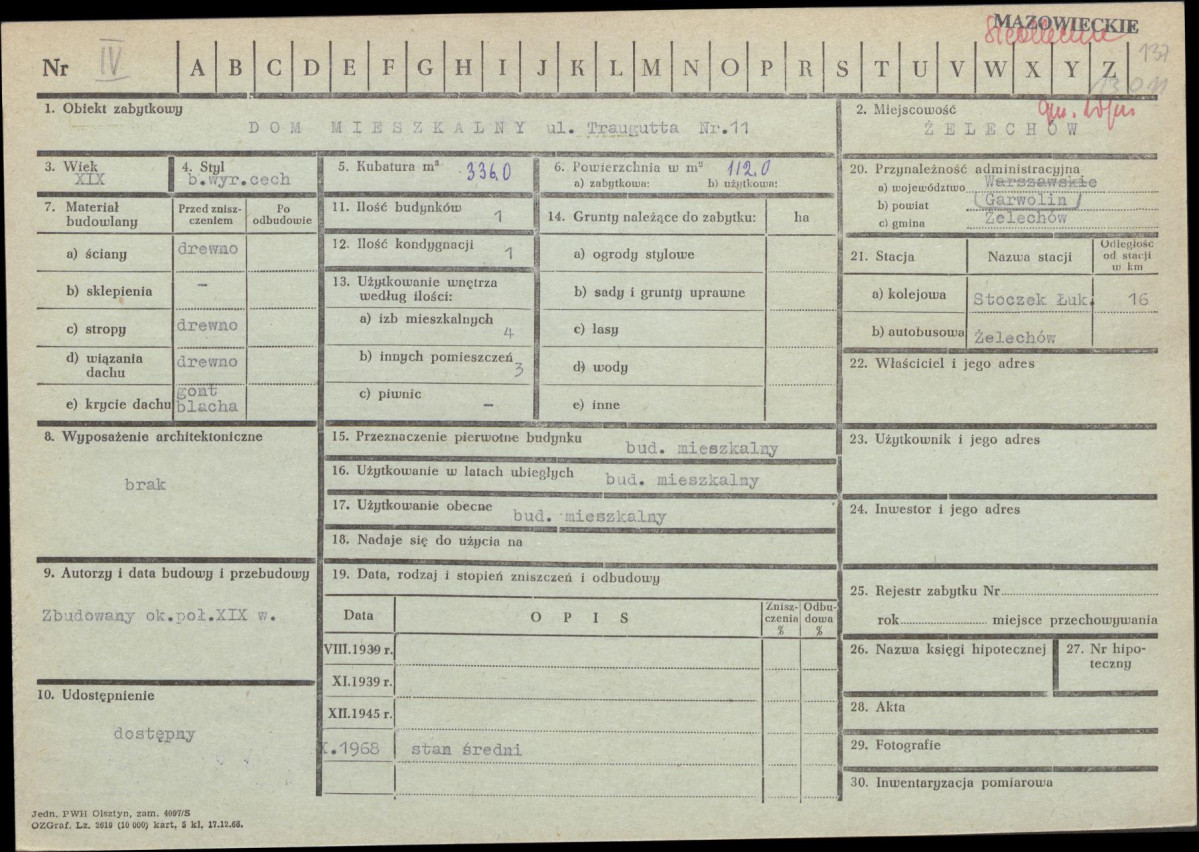 MAZOWIECKIE
Siedleckie
137
Nr IV A B C D E F G H I J K L M N O P R S T U V W X Y Z
1. Obiekt zabytkowy
DOM MIESZKALNY ul. Traugutta Nr.11
2. Miejscowość
ŻELECHÓW
3. Wiek
XIX
4. Styl
b.wyr.cech
5. Kubatura m³ 336,0
6. Powierzchnia w m² 112,0
a) zabytkowa: b) użytkowa:
7. Materiał budowlany
Przed zniszczeniem
Po odbudowie
a) ściany drewno
b) sklepienia –
c) stropy drewno
d) wiązania dachu drewno
e) krycie dachu gont blacha
8. Wyposażenie architektoniczne
brak
9. Autorzy i data budowy i przebudowy
Zbudowany ok.poł.XIX w.
10. Udostępnienie
dostępny
11. Ilość budynków 1
12. Ilość kondygnacji 1
13. Użytkowanie wnętrza
według ilości:
a) izb mieszkalnych 4
b) innych pomieszczeń 3
c) piwnic –
14. Grunty należące do zabytku: ha
a) ogrody stylowe
b) sady i grunty uprawne
c) lasy
d) wody
e) inne
15. Przeznaczenie pierwotne budynku bud. mieszkalny
16. Użytkowanie w latach ubiegłych bud. mieszkalny
17. Użytkowanie obecne bud. mieszkalny
18. Nadaje się do użycia na
19. Data, rodzaj i stopień zniszczeń i odbudowy
Data OPIS Zniszczenia % Odbudowa %
VIII.1939 r.
XI.1939 r.
XII.1945 r.
X.1968 stan średni
20. Przynależność administracyjna
a) województwo Warszawskie
b) powiat (Garwolin)
c) gmina Żelechów
21. Stacja Nazwa stacji Odległość od stacji w km
a) kolejowa Stoczek Łuk. 16
b) autobusowa Żelechów
22. Właściciel i jego adres
23. Użytkownik i jego adres
24. Inwestor i jego adres
25. Rejestr zabytku Nr
rok miejsce przechowywania
26. Nazwa księgi hipotecznej
27. Nr hipoteczny
28. Akta
29. Fotografie
30. Inwentaryzacja pomiarowa
Jedn. PWH Olsztyn, zam. 4097/S
OZGraf. Lz. 2619 (10 000) kart, 5 kl, 17.12.66.